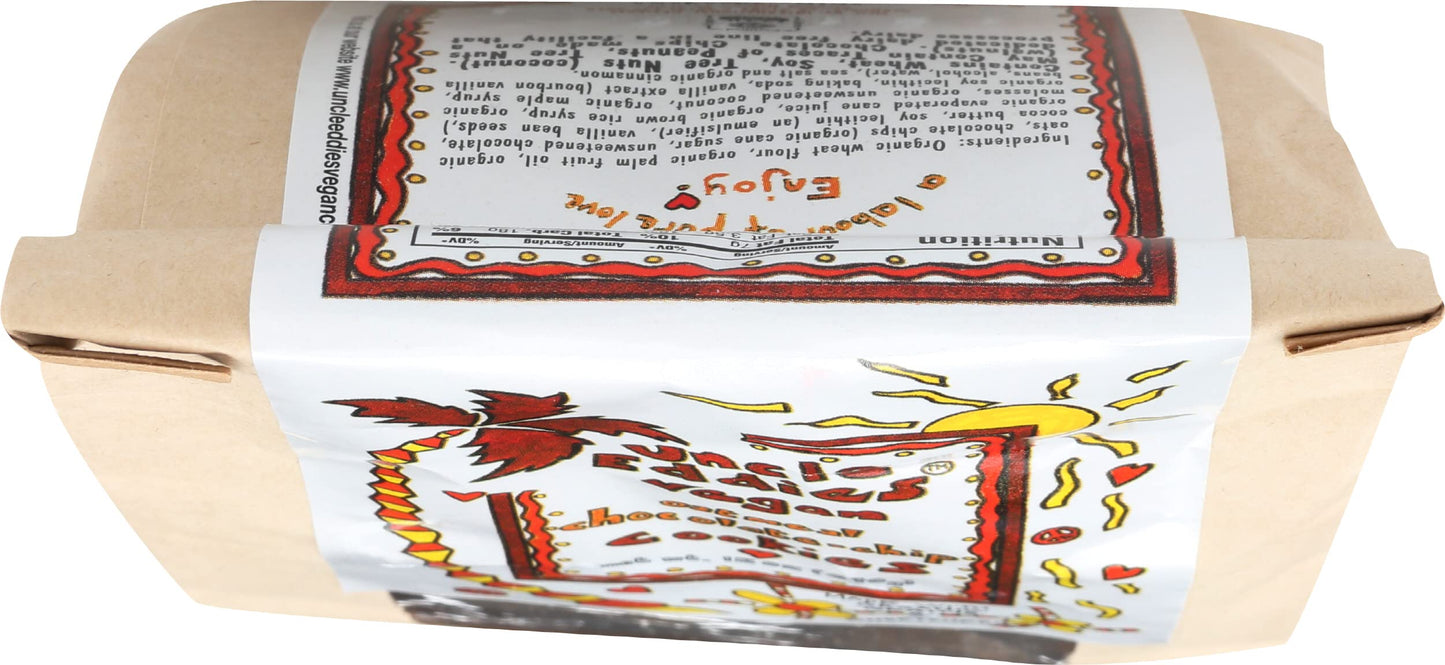 Nutrition
Amount/Serving %DV*
Total Fat 7g 10%
Amount/Serving %DV*
Total Carb. 18g 6%
a labour of pure love
Enjoy
Ingredients: Organic wheat flour, organic palm fruit oil, organic
oats, chocolate chips (organic cane sugar, unsweetened chocolate,
cocoa butter, soy lecithin (an emulsifier), vanilla bean seeds,)
organic evaporated cane juice, organic brown rice syrup, organic
molasses, organic unsweetened coconut, organic maple syrup,
organic soy lecithin, baking soda, vanilla extract (bourbon vanilla
beans, alcohol, water), sea salt and organic cinnamon.
Contains Wheat, Soy, Tree Nuts (coconut).
May Contain Traces of Peanuts, Tree Nuts
Chocolate Chips made on a
dedicated dairy free line in a facility that
processes dairy.
website www.uncleeddiesveganc
uncle
Eddies TM
vegan
oatmeal
chocolate-chip
cookies